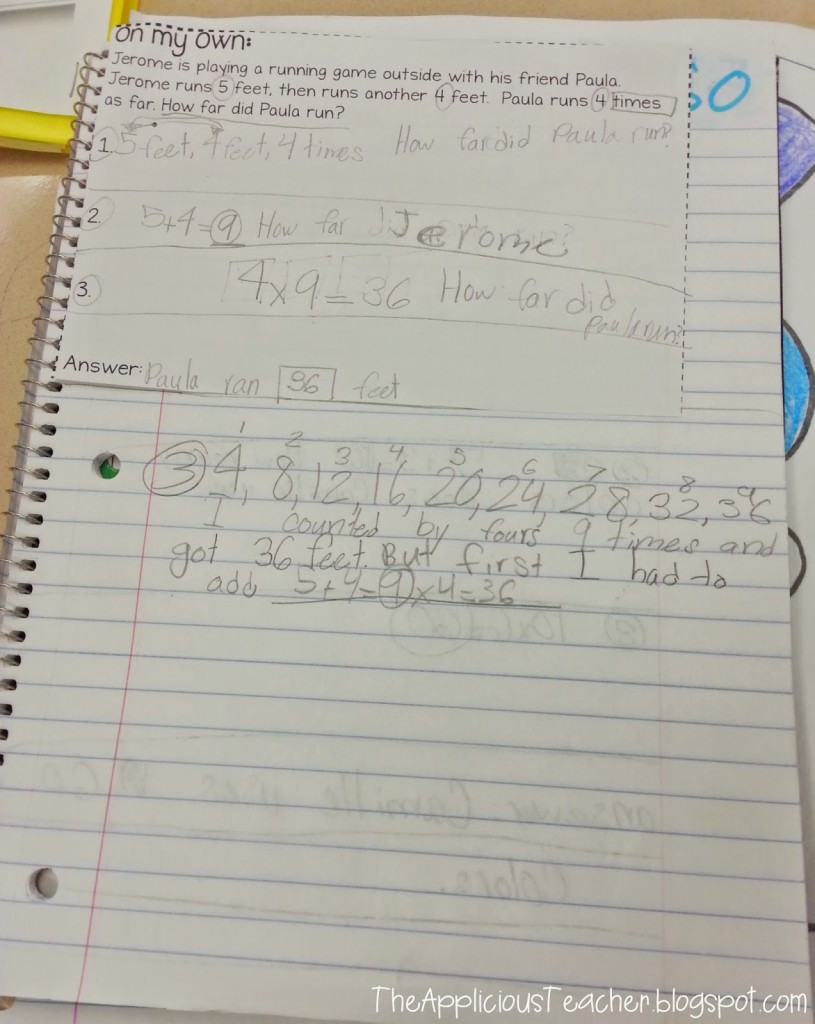 on my own:
Jerome is playing a running game outside with his friend Paula.
Jerome runs 5 feet, then runs another 4 feet. Paula runs 4 times
as far. How far did Paula run?
1. 5 feet, 4 feet, 4 times How far did Paula run?
2. 5+4=9 How far Jerome?
3. 4x9=36 How far did
Paula run?
Answer: Paula ran 36 feet
1 2 3 4 5 6 7 8 9
3 4, 8, 12, 16, 20, 24, 28, 32, 36
I counted by fours 9 times and
got 36 feet. But first I had to
add 5+4=9x4=36
answer: Camille uses 60
Colors.
TheAppliciousTeacher.blogspot.com